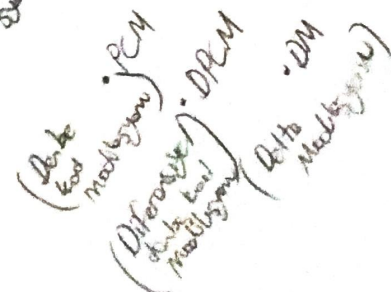 • PCM
(Darbe
kod
modülasyonu)
• DPCM
(Diferansiyel
darbe kod
modülasyonu)
• DM
(Delta
Modülasyonu)